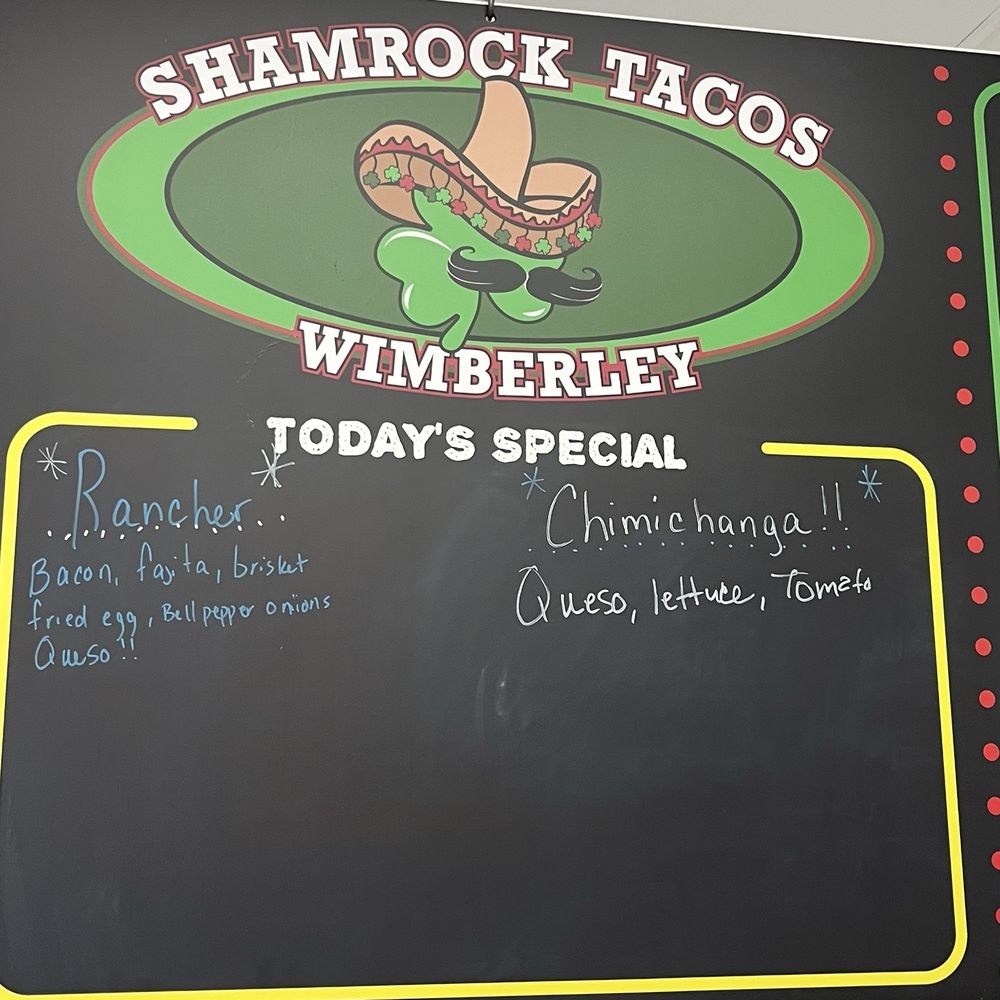 SHAMROCK TACOS
WIMBERLEY
TODAY'S SPECIAL
Rancher
Bacon, fajita, brisket
fried egg, Bell pepper onions
Queso!!
Chimichanga!!
Queso, lettuce, Tomato